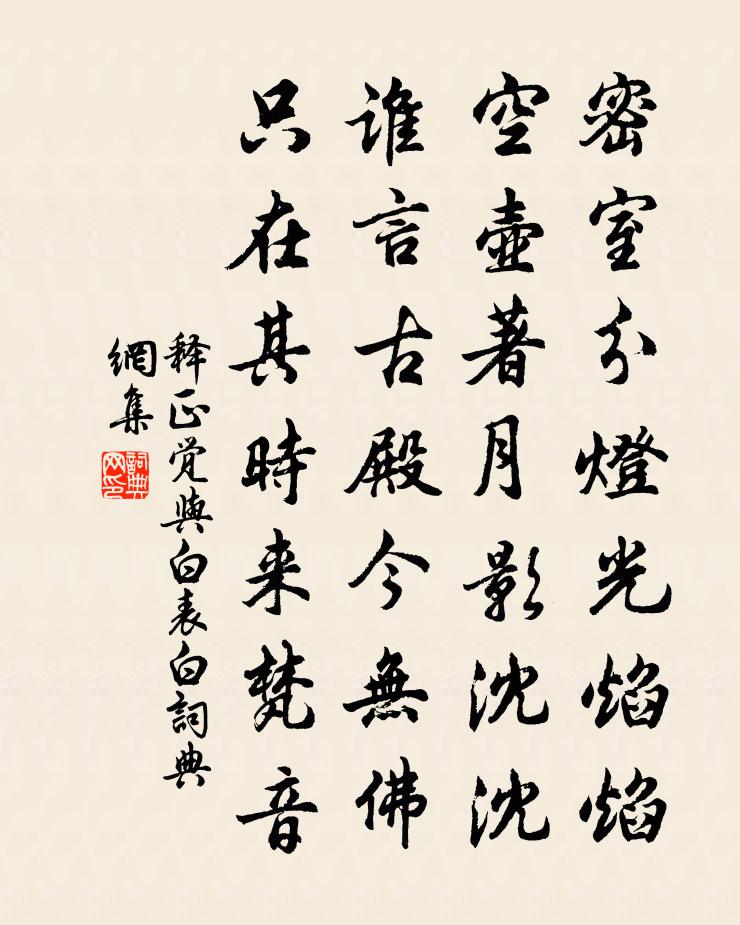 密室分燈光焰焰
空壺著月影沈沈
谁言古殿今無佛
只在其時来梵音
释正觉與白表白詞典
網集
詞典網印